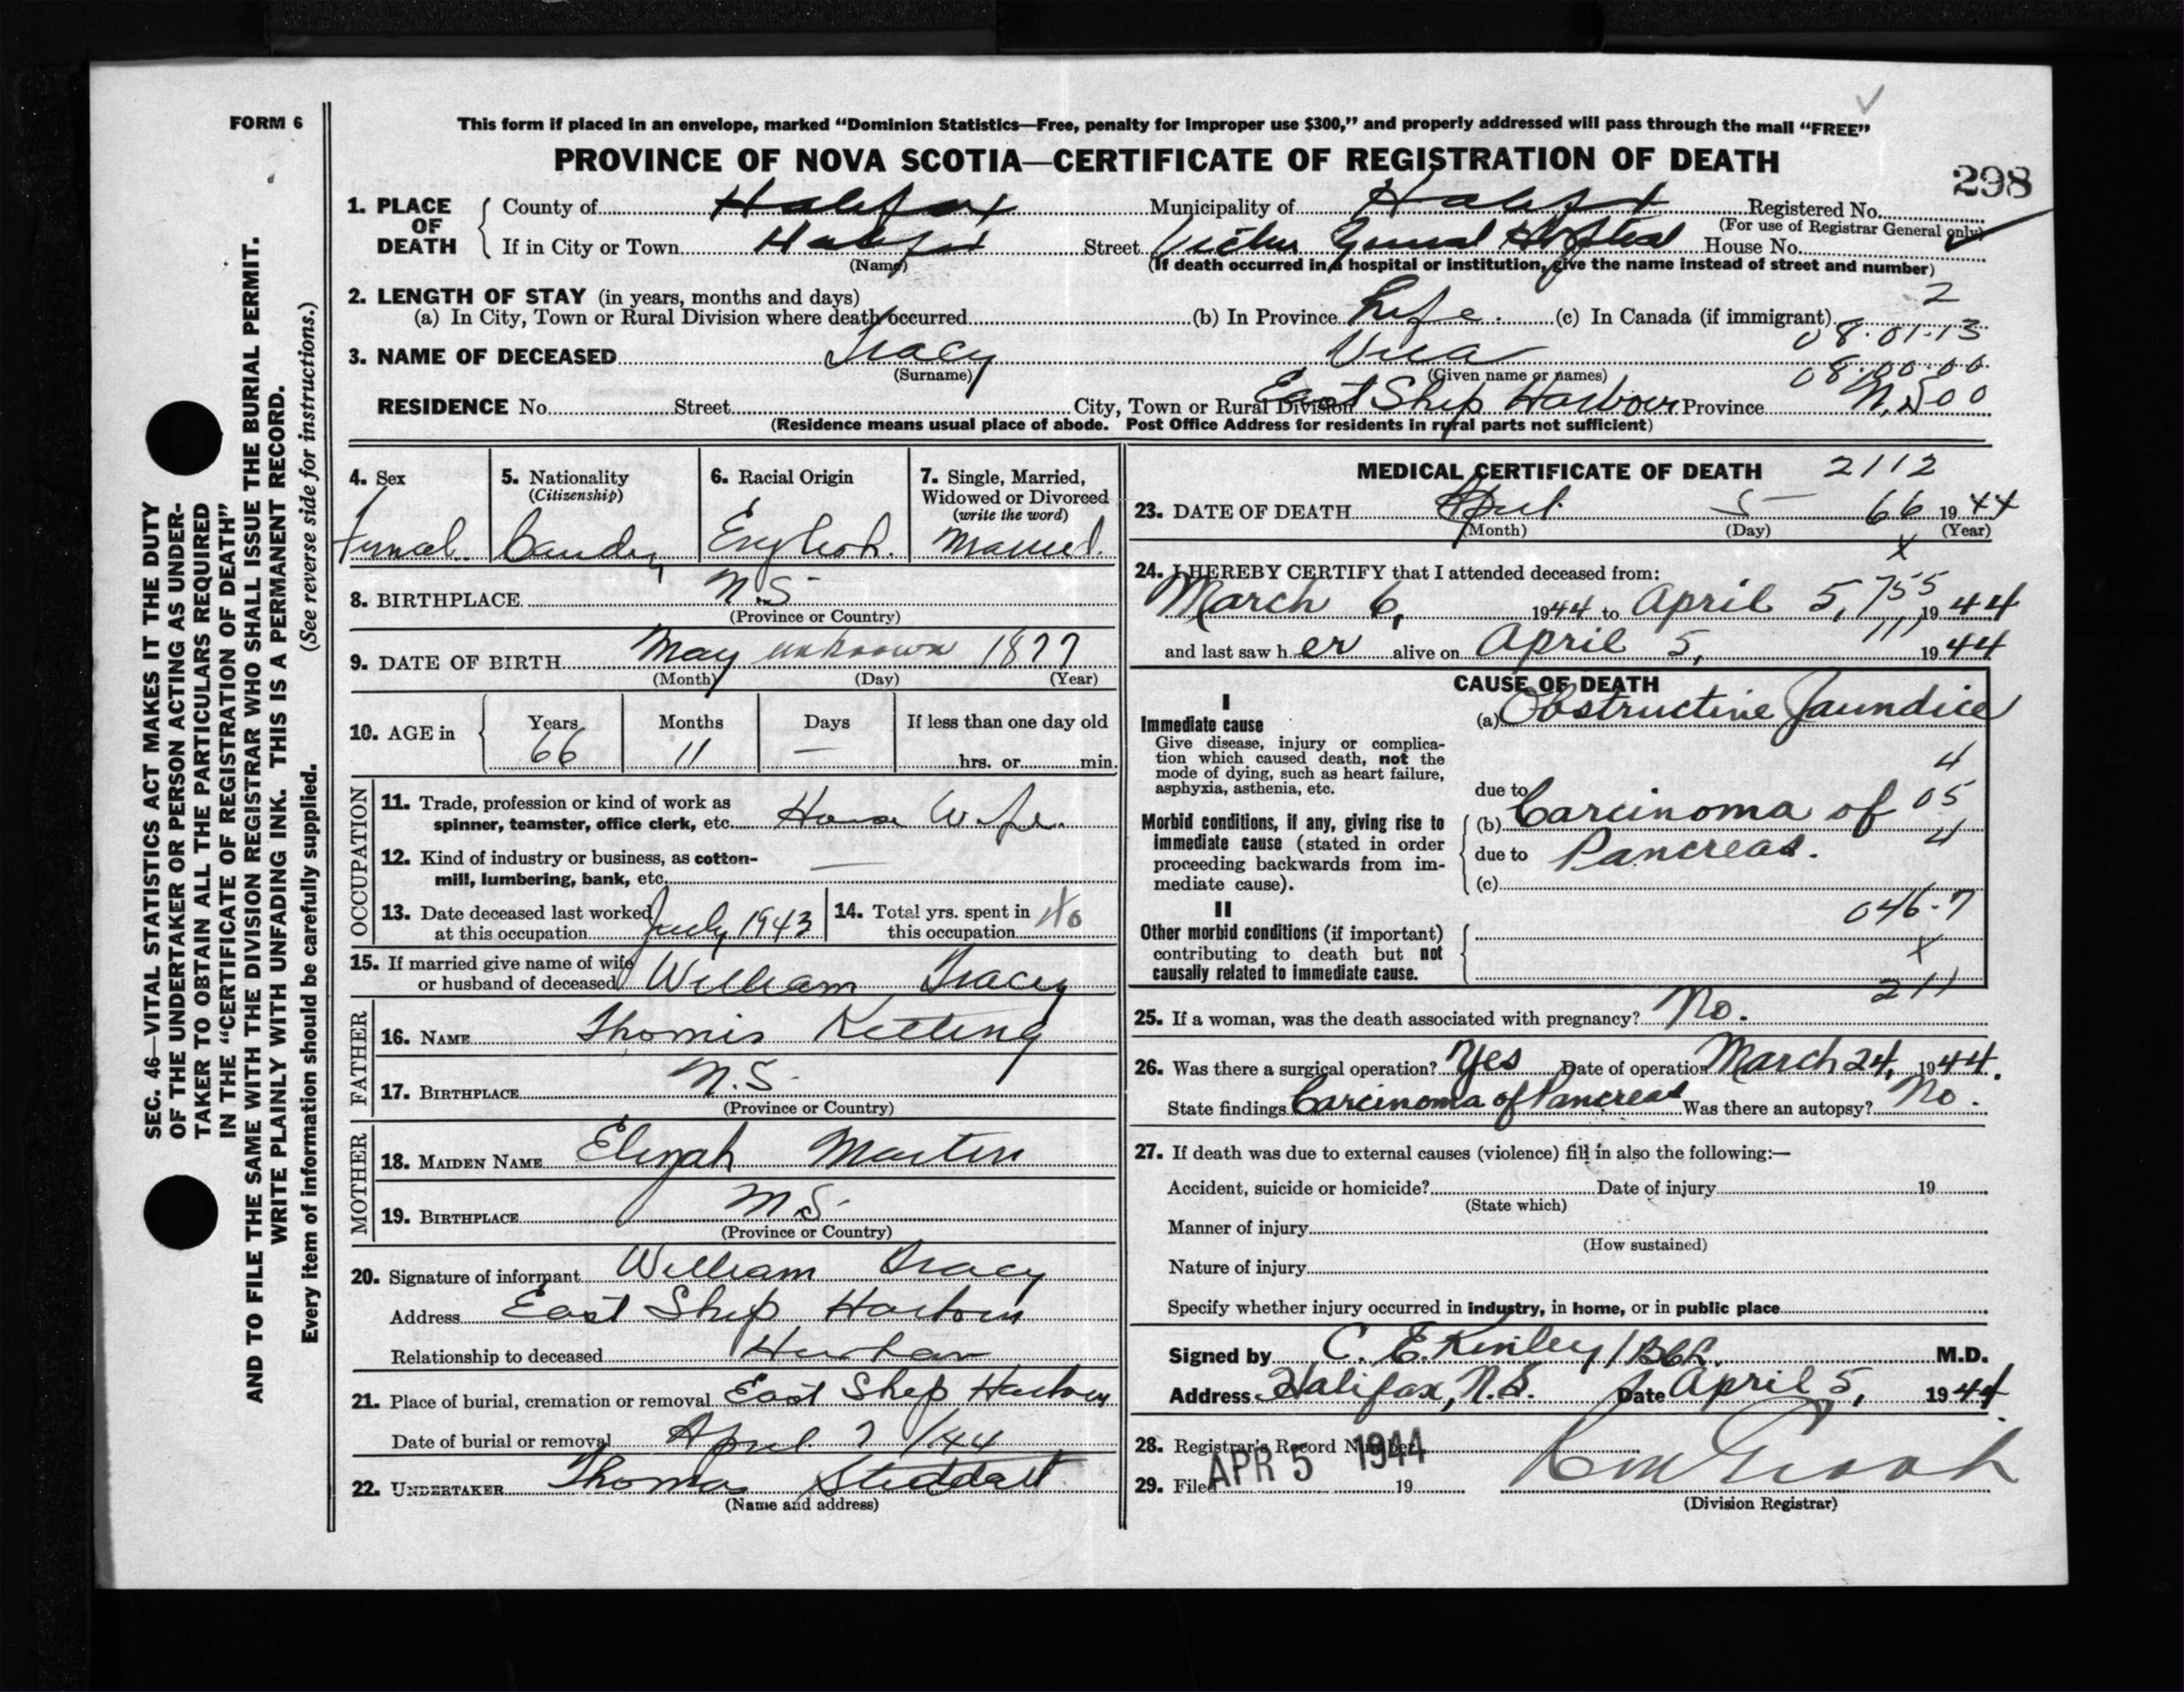 FORM 6
This form if placed in an envelope, marked “Dominion Statistics—Free, penalty for improper use $300,” and properly addressed will pass through the mail “FREE”
PROVINCE OF NOVA SCOTIA—CERTIFICATE OF REGISTRATION OF DEATH
298
1. PLACE OF DEATH
County of Halifax Municipality of Halifax Registered No.
(For use of Registrar General only)
If in City or Town Halifax Street General Hospital House No.
(Name) (If death occurred in a hospital or institution, give the name instead of street and number)
2. LENGTH OF STAY (in years, months and days) 2
(a) In City, Town or Rural Division where death occurred (b) In Province Life. (c) In Canada (if immigrant)
08·01·13
3. NAME OF DECEASED Tracy
(Surname) (Given name or names)
08·00·00
RESIDENCE No. Street City, Town or Rural Division East Ship Harbour Province N.S 00
(Residence means usual place of abode. Post Office Address for residents in rural parts not sufficient)
4. Sex
5. Nationality
(Citizenship)
6. Racial Origin English.
7. Single, Married,
Widowed or Divorced
(write the word)
Married.
8. BIRTHPLACE N.S
(Province or Country)
9. DATE OF BIRTH May unknown 1877
(Month) (Day) (Year)
10. AGE in
Years Months Days If less than one day old
66 11 — hrs. or min.
OCCUPATION
11. Trade, profession or kind of work as
spinner, teamster, office clerk, etc. House Wife.
12. Kind of industry or business, as cotton-
mill, lumbering, bank, etc. —
13. Date deceased last worked
at this occupation July 1943
14. Total yrs. spent in
this occupation
15. If married give name of wife
or husband of deceased William Tracey
FATHER
16. NAME Thomis Keeting
17. BIRTHPLACE N.S.
(Province or Country)
MOTHER
18. MAIDEN NAME Martin
19. BIRTHPLACE N.S.
(Province or Country)
20. Signature of informant William Tracy
Address East Ship Harbour
Relationship to deceased
21. Place of burial, cremation or removal East Ship Harbour
Date of burial or removal April 7/44
22. UNDERTAKER Thomas Stoddart
(Name and address)
MEDICAL CERTIFICATE OF DEATH 2112
23. DATE OF DEATH April 5 66 1944
(Month) (Day) (Year)
x
24. I HEREBY CERTIFY that I attended deceased from:
March 6, 1944 to April 5, 1944
755
111
and last saw her alive on April 5, 1944
CAUSE OF DEATH
I
Immediate cause
Give disease, injury or complica-
tion which caused death, not the
mode of dying, such as heart failure,
asphyxia, asthenia, etc.
(a) Obstructive Jaundice
4
due to
05
Morbid conditions, if any, giving rise to
immediate cause (stated in order
proceeding backwards from im-
mediate cause).
(b) Carcinoma of
4
due to Pancreas.
(c)
046·7
II
Other morbid conditions (if important)
contributing to death but not
causally related to immediate cause.
x
211
25. If a woman, was the death associated with pregnancy? No.
26. Was there a surgical operation? Yes Date of operation March 24, 1944.
State findings Carcinoma of Pancreas Was there an autopsy? No.
27. If death was due to external causes (violence) fill in also the following:—
Accident, suicide or homicide? Date of injury 19
(State which)
Manner of injury
(How sustained)
Nature of injury
Specify whether injury occurred in industry, in home, or in public place
Signed by C. E. Kinley M.D.
Address Halifax, N.S. Date April 5, 1944.
28. Registrar's Record Number
APR 5 1944
29. Filed 19
(Division Registrar)
SEC. 46—VITAL STATISTICS ACT MAKES IT THE DUTY
OF THE UNDERTAKER OR PERSON ACTING AS UNDER-
TAKER TO OBTAIN ALL THE PARTICULARS REQUIRED
IN THE “CERTIFICATE OF REGISTRATION OF DEATH”
AND TO FILE THE SAME WITH THE DIVISION REGISTRAR WHO SHALL ISSUE THE BURIAL PERMIT.
WRITE PLAINLY WITH UNFADING INK. THIS IS A PERMANENT RECORD.
Every item of information should be carefully supplied. (See reverse side for instructions.)